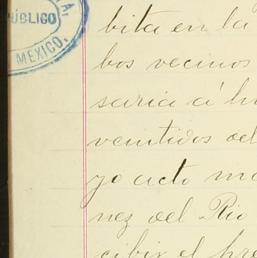 PÚBLICO
MÉXICO.
bita en la
bos vecinos
saria á h
ventidos del
yo acto m
nez del Rio
cibir el pre